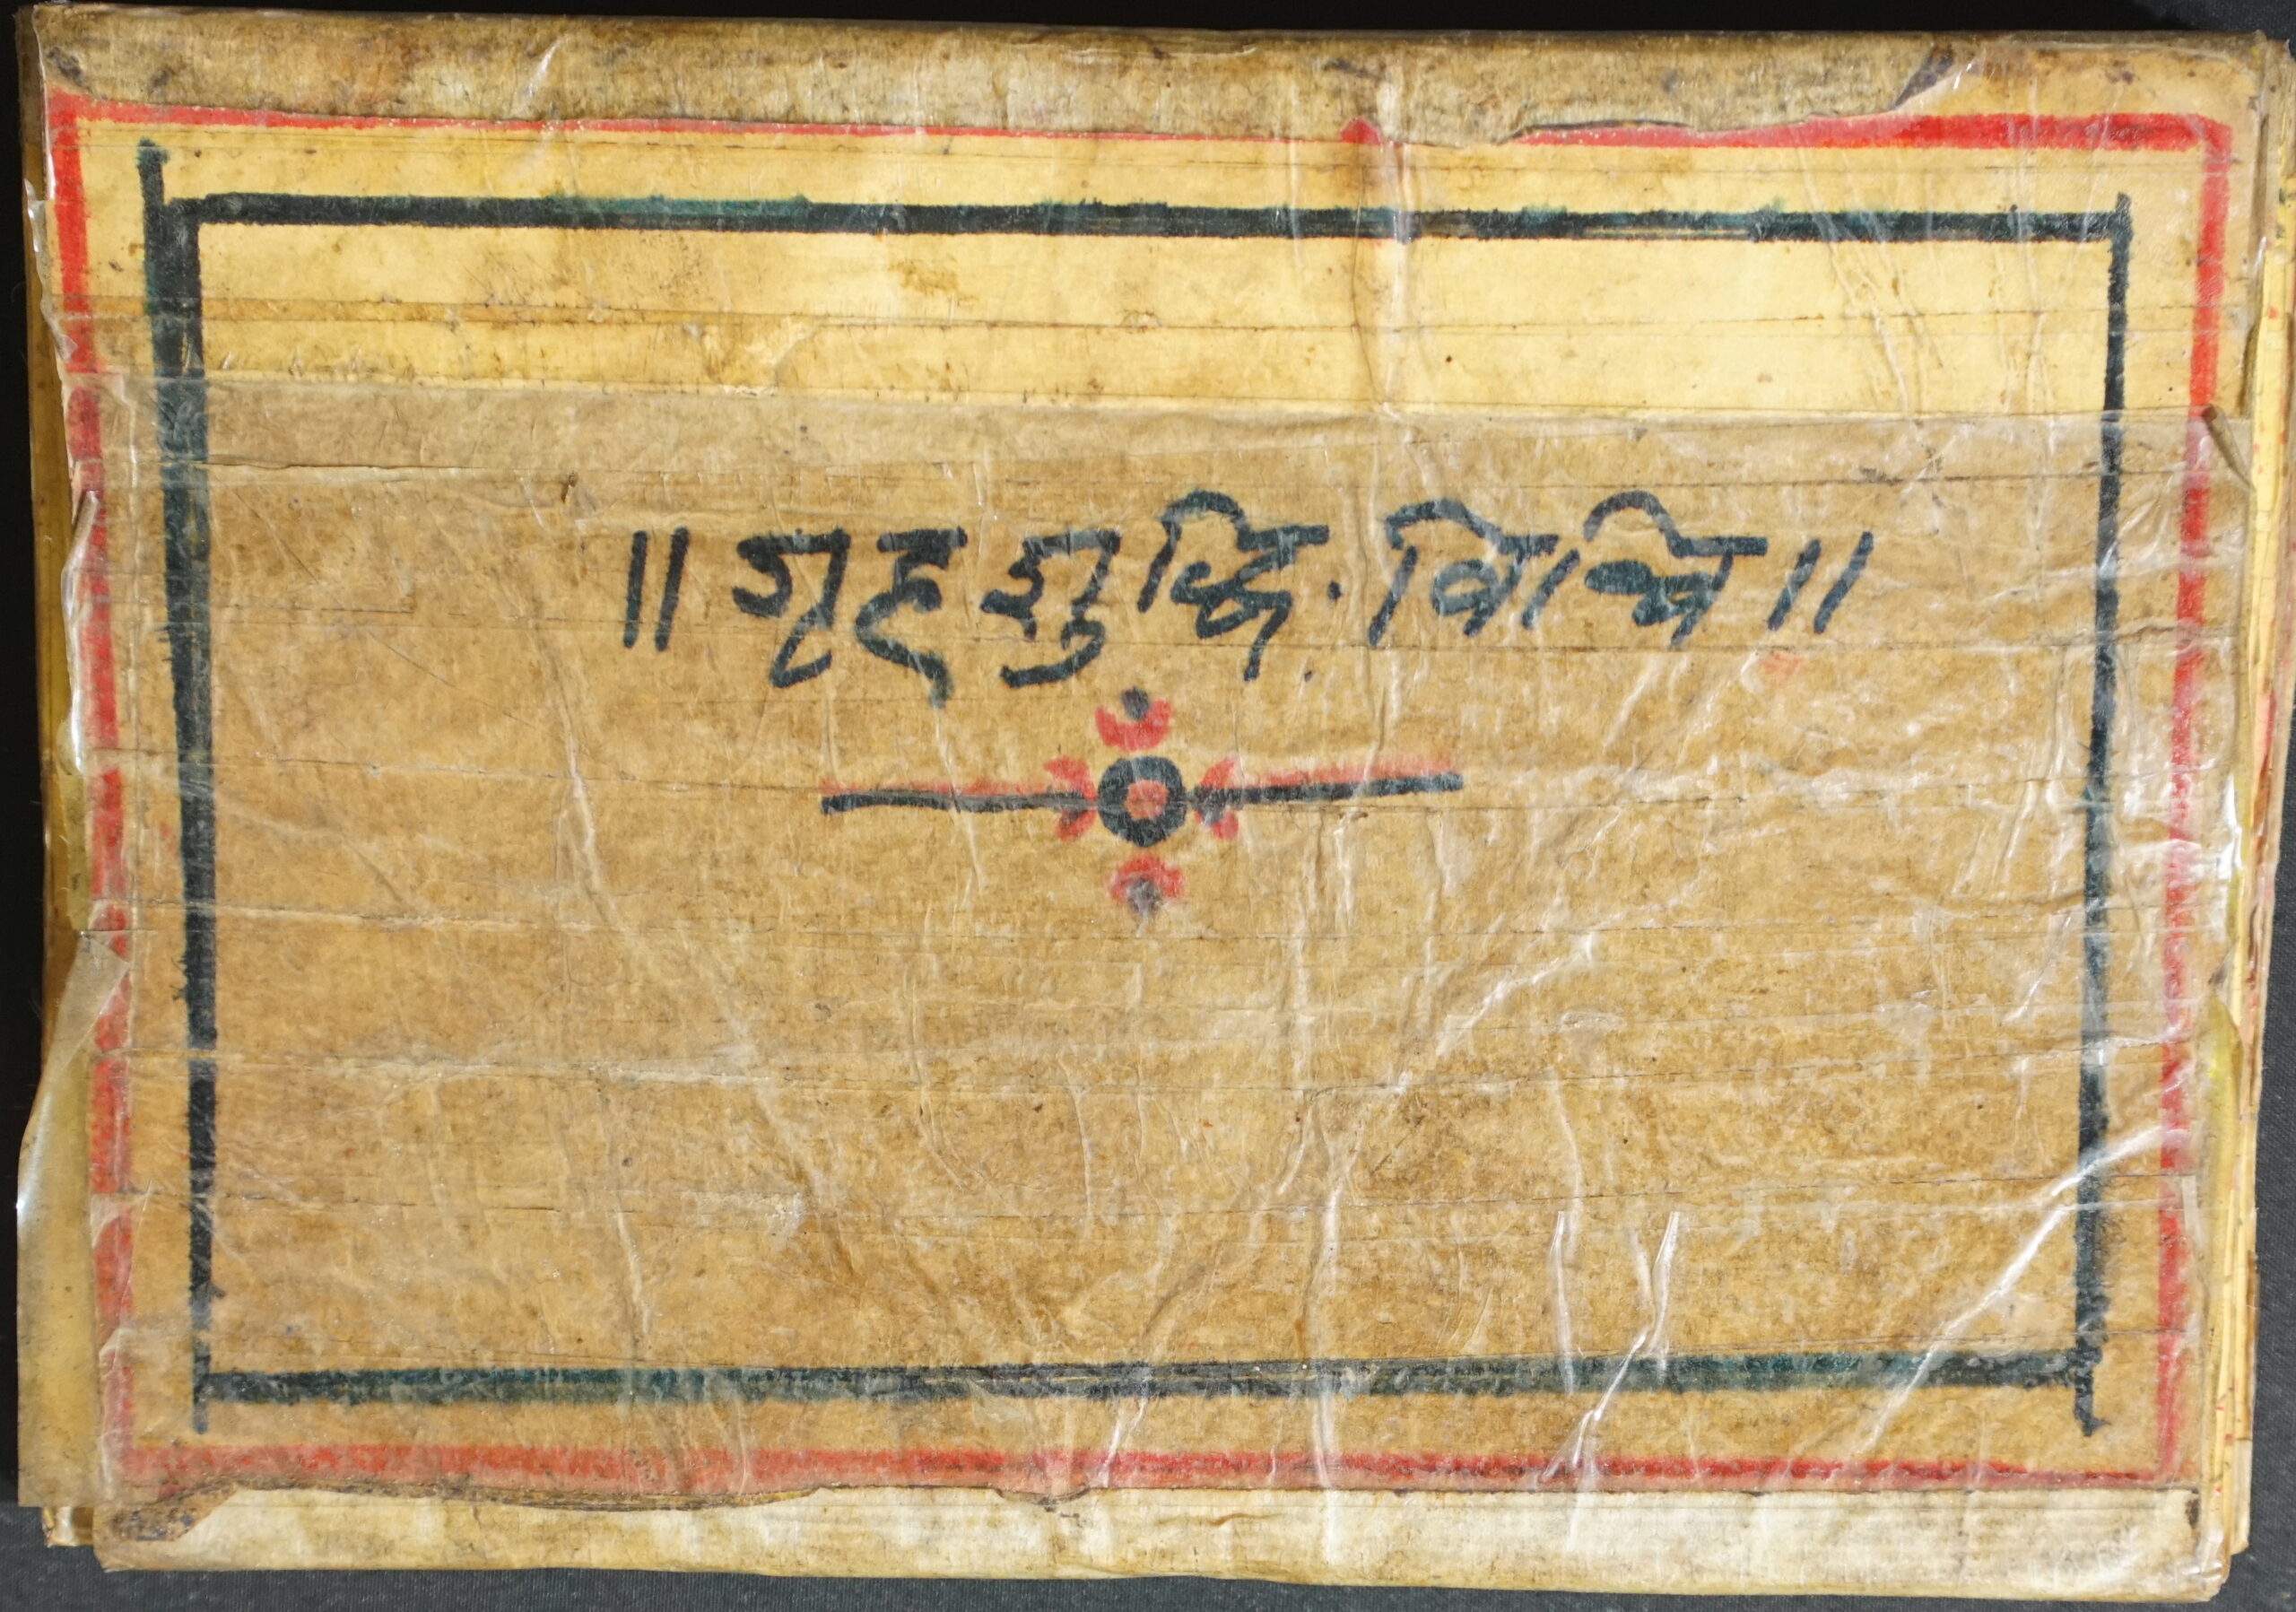 ॥ गृह शुद्धि. विधि ॥